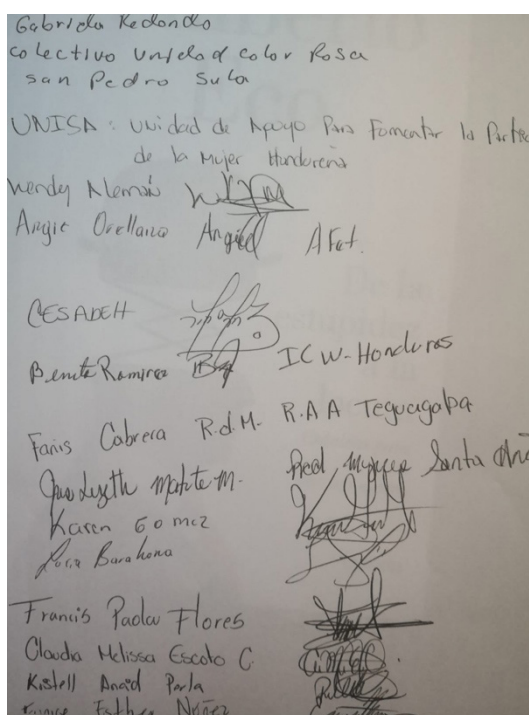 Gabriela Redondo
Colectivo Unidad Color Rosa
San Pedro Sula
UNISA: Unidad de Apoyo Para Fomentar la
de la Mujer Hondureña
Wendy Alemán
Angie Orellana Angie A Fat.
CESADEH
Benita Ramirez ICW-Honduras
Fanis Cabrera R.d.M. R.A.A Teguagalpa
Lizeth Matute M. Red Mujeres Santa
Karen Gomez
Barahona
Francis Paola Flores
Claudia Melissa Escoto C.
Kistell Anaid Perla
Esther Núñez